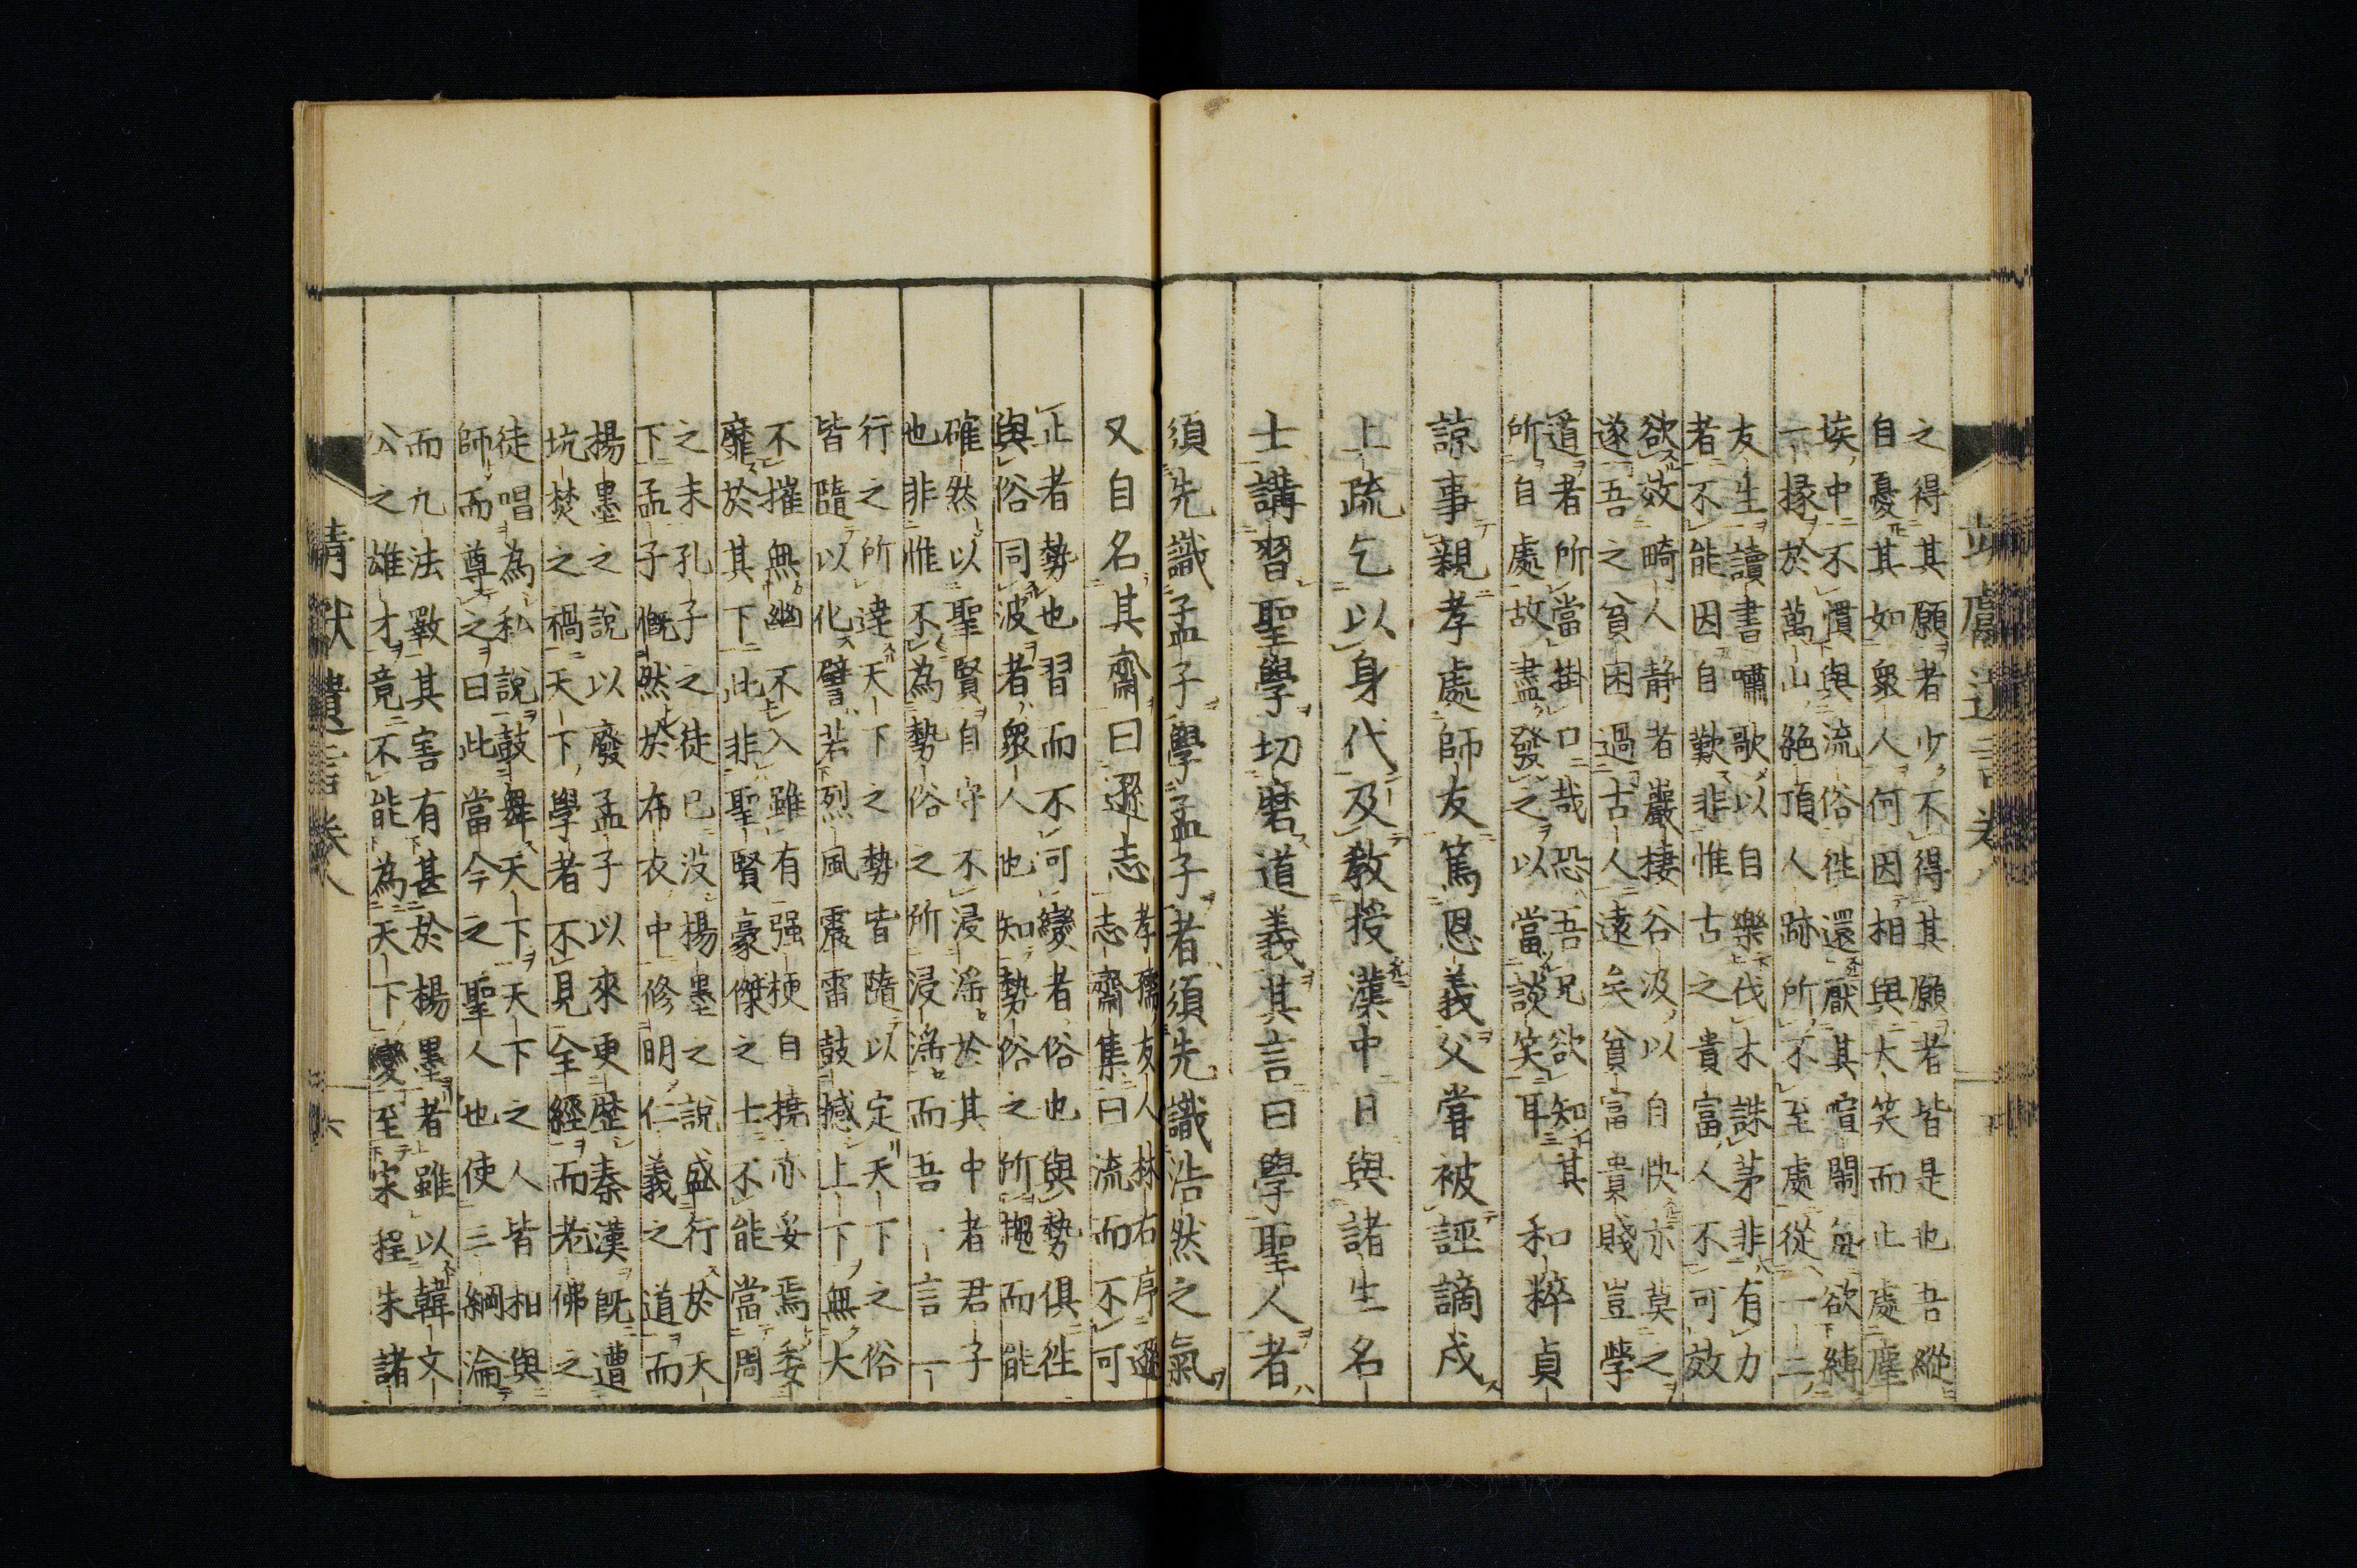 之得其願者少不得其願者皆是也吾縱
自憂其如衆人何因相與大笑而止處塵
埃中不慣與流俗徃還厭其喧鬧每欲縛
一椽於萬山絶頂人跡所不至處從一二
友生讀書嘯歌以自樂伐木誅茅非有力
者不能因自歎非惟古之貴富人不可效
欲效畸人静者巖棲谷汲以自快亦莫之
遂吾之貧困過古人遠矣貧富貴賤豈學
道者所當掛口哉恐吾兄欲知其
所自處故盡發之以當談笑耳
和粹貞
諒事親孝處師友篤恩義父嘗被誣謫戍
上疏乞以身代及教授漢中日與諸生名
士講習聖學切磨道義其言曰學聖人者
須先識孟子學孟子者須先識浩然之氣
又自名其齋曰遜志
孝孺友人林右序遜
志齋集曰流而不可
止者勢也習而不可變者俗也與勢俱徃
與俗同波者衆人也知勢俗之所趨而能
確然以聖賢自守不浸淫於其中者君子
也非惟不為勢俗之所浸淫而吾一言一
行之所達天下之勢皆隨以定天下之俗
皆隨以化譬若烈風震雷鼓撼上下無大
不摧無幽不入雖有强梗自撓亦妥焉委
靡於其下此非聖賢豪傑之士不能當周
之末孔子之徒已没楊墨之說盛行於天
下孟子慨然於布衣中修明仁義之道而
楊墨之說以廢孟子以來更歷秦漢既遭
坑焚之禍天下學者不見全經而老佛之
徒唱為私說鼓舞天下天下之人皆相與
師而尊之曰此當今之聖人也使三綱淪
而九法斁其害有甚於楊墨者雖以韓文
公之雄才竟不能為天下變至宋程朱諸
靖献遺言巻八
六